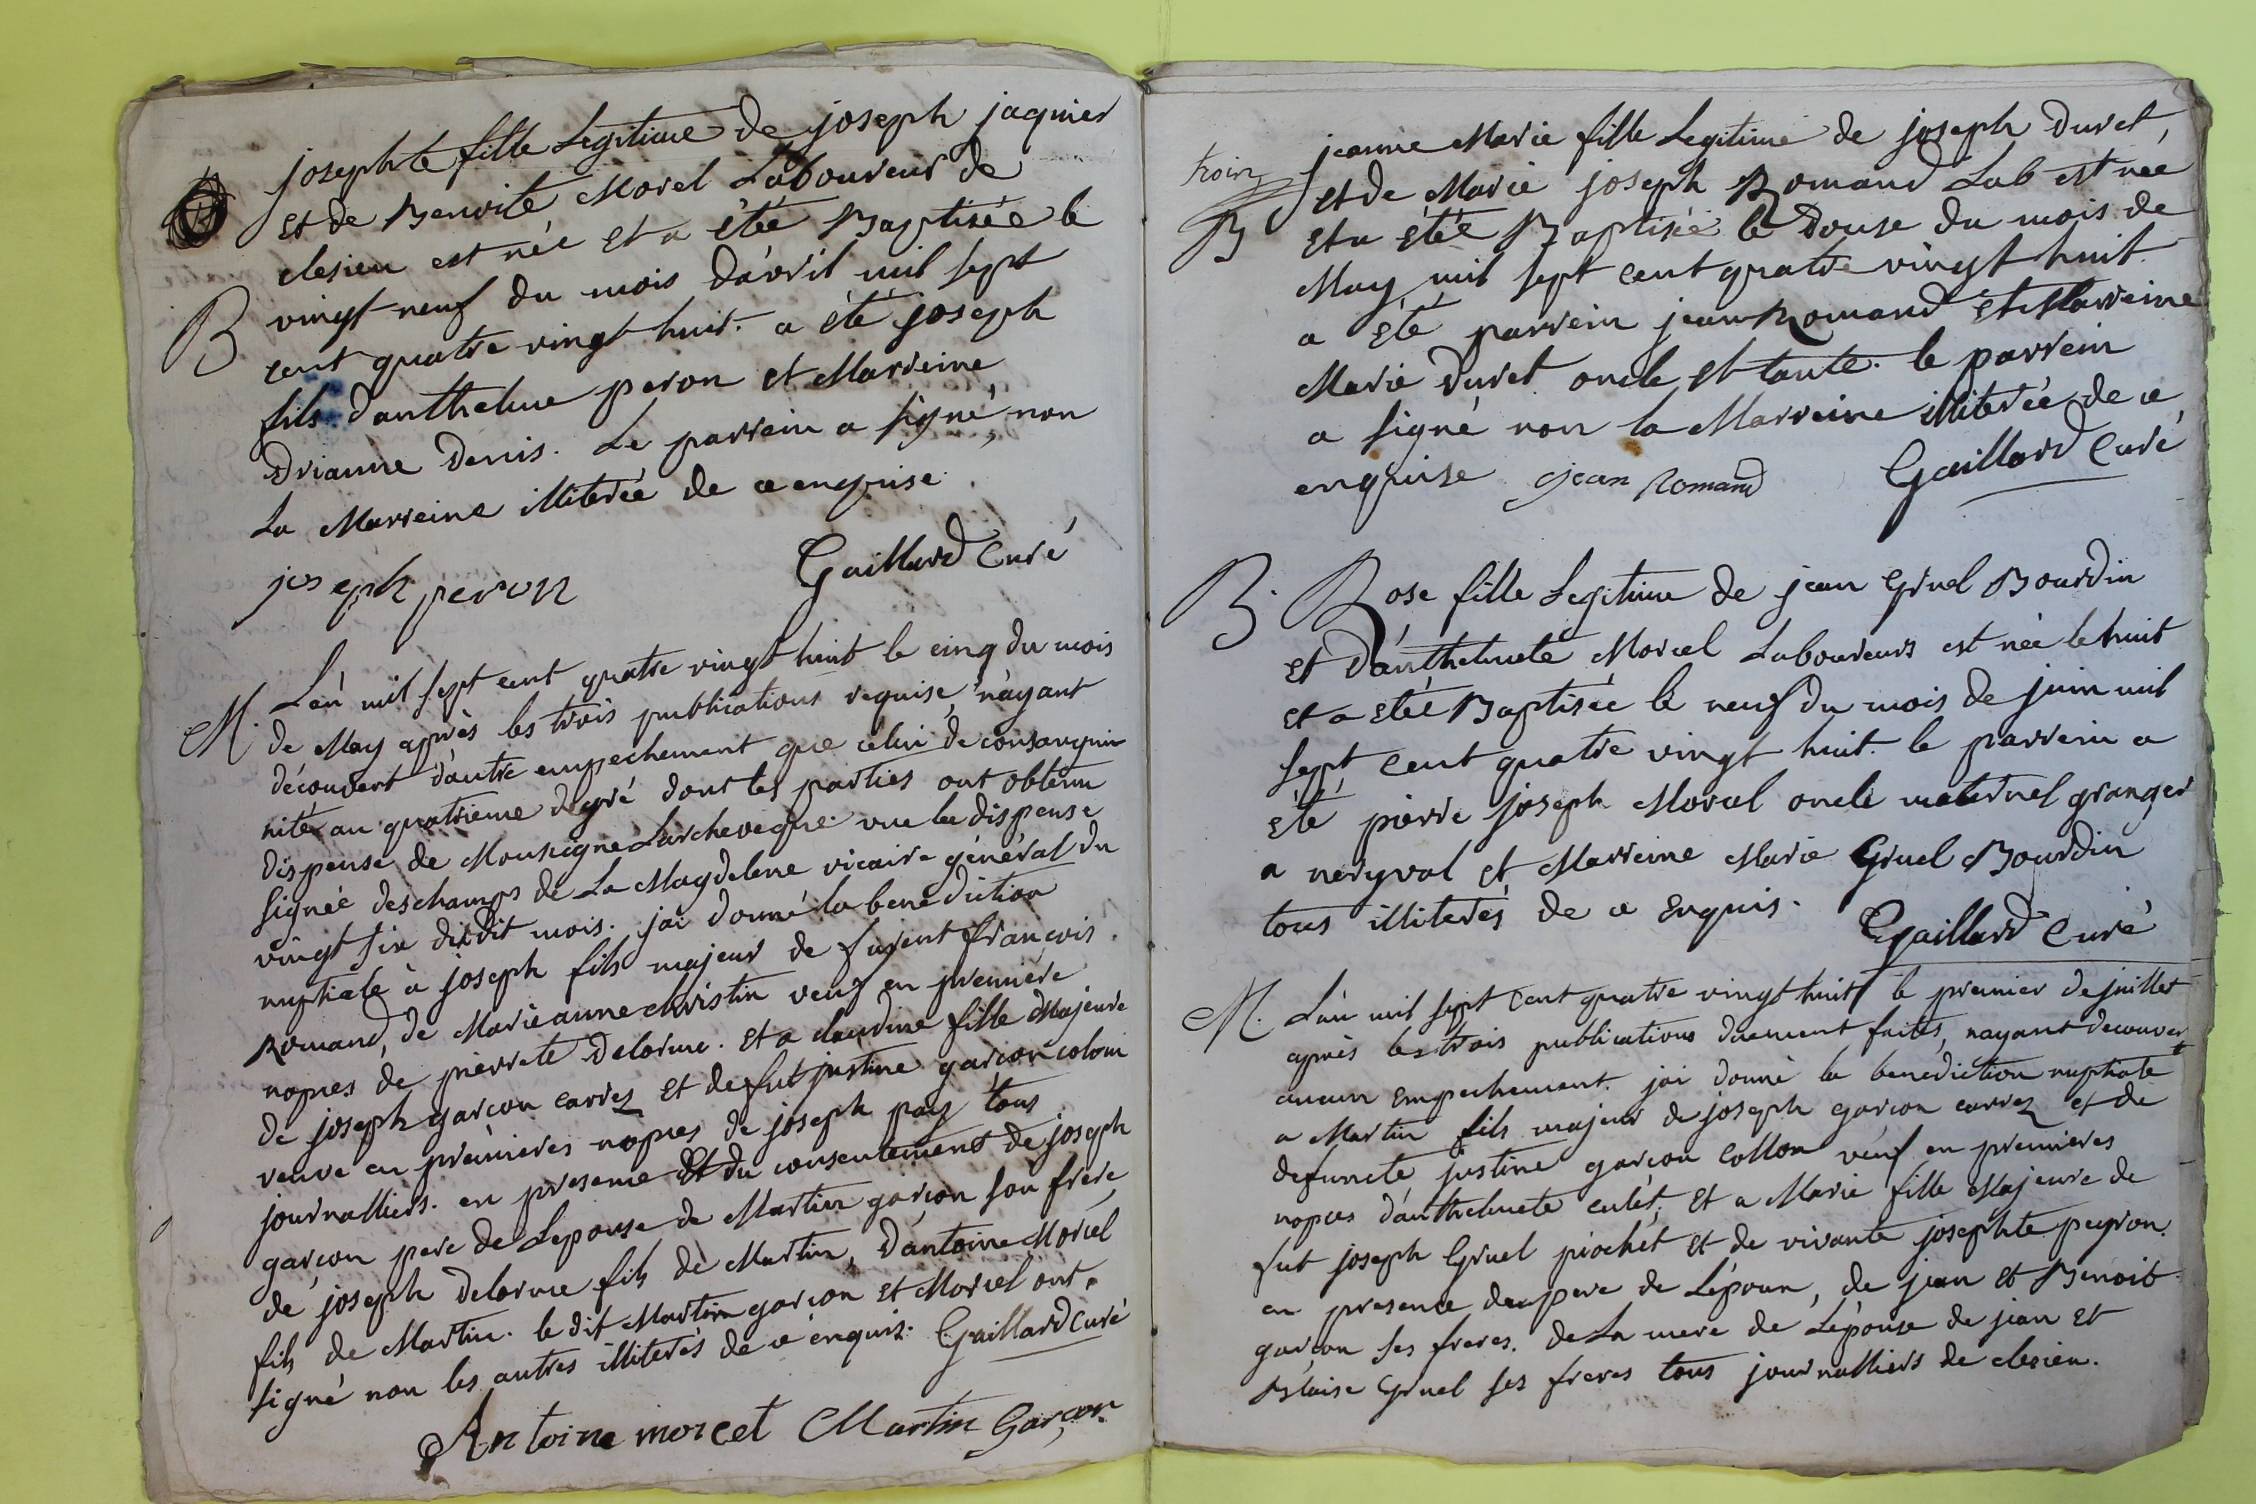 josephte fille Legitime de joseph jaquier
et de Benoite Morel Laboureur de
clesieu est née et a étée Baptisée le
B vingt neuf du mois davril mil sept
cent quatre vingt huit. a été joseph
fils danthelme peron et Marreine
Drianne Denis. Le parrein a signé, non
La Marreine illiterée de ce enquise.
joseph peron Gaillard Curé
M. L'an mil sept cent quatre vingt huit le cinq du mois
de May après les trois publications requise, n'ayant
découvert d'autre empechement que celui de consanguin
nité au quatrieme degré dont les parties ont obtenu
dispense de Monseigne Larcheveque. vue la dispense
signée deschamps de La Magdelene vicaire général du
vingt six dudit mois. jai donné la benediction
nuptiale à joseph fils majeur de françois
Romand, de Marie anne christin veuf en première
nopces de pierrete Delorme. et a claudine fille Majeure
de joseph garçon carrez et de fut justine garçon colom
veuve en prèmieres nopces de joseph pay tous
journalliers. en presence et du consentement de joseph
garçon pere de Lepouse de Martin garçon son frere,
de joseph Delorme fils de Martin, d'antoine Morcel
fils de Martin. le dit Martin garçon et Morcel ont
signé non les autres illiterés de ce enquis. Gaillard Curé
Antoine morcet Martin Garçon
jeanne Marie fille Legitime de joseph Duret,
et de Marie joseph Romand Lab est née
B et a étée Baptisée le Douse du mois de
May mil sept cent quatre vingt huit.
a été parrein jean Romand et Marreine
Marie Duret oncle et tante. le parrein
a signé non la Marreine illiterée de ce
enquise jean Romand Gaillard Curé
B. Rose fille Legitime de jean Gruel Bourdin
et d'anthelmete Morcel Laboureurs est née le huit
et a étée Baptisée le neuf du mois de juin mil
sept cent quatre vingt huit. le parrein a
été pierre joseph Morcel oncle maternel granger
a neryval et Marreine Marie Gruel Bourdin
tous illiterés de ce enquis. Gaillard Curé
M. L'an mil sept cent quatre vingt huit le premier de juillet
après les trois publications duement faites, nayant decouvert
aucun empechement. jai donné la benediction nuptiale
a Martin fils majeur de joseph garçon carrez et de
defuncte justine garçon collon veuf en premieres
nopces d'anthelmete culet, et a Marie fille Majeure de
fut joseph Gruel piochet et de vivante josephte peyron.
en presence du pere de L'épour, de jean et Benoit
garçon ses freres. de La mere de L'épouse de jean et
Blaise Gruel ses freres tous journalliers de clesieu.